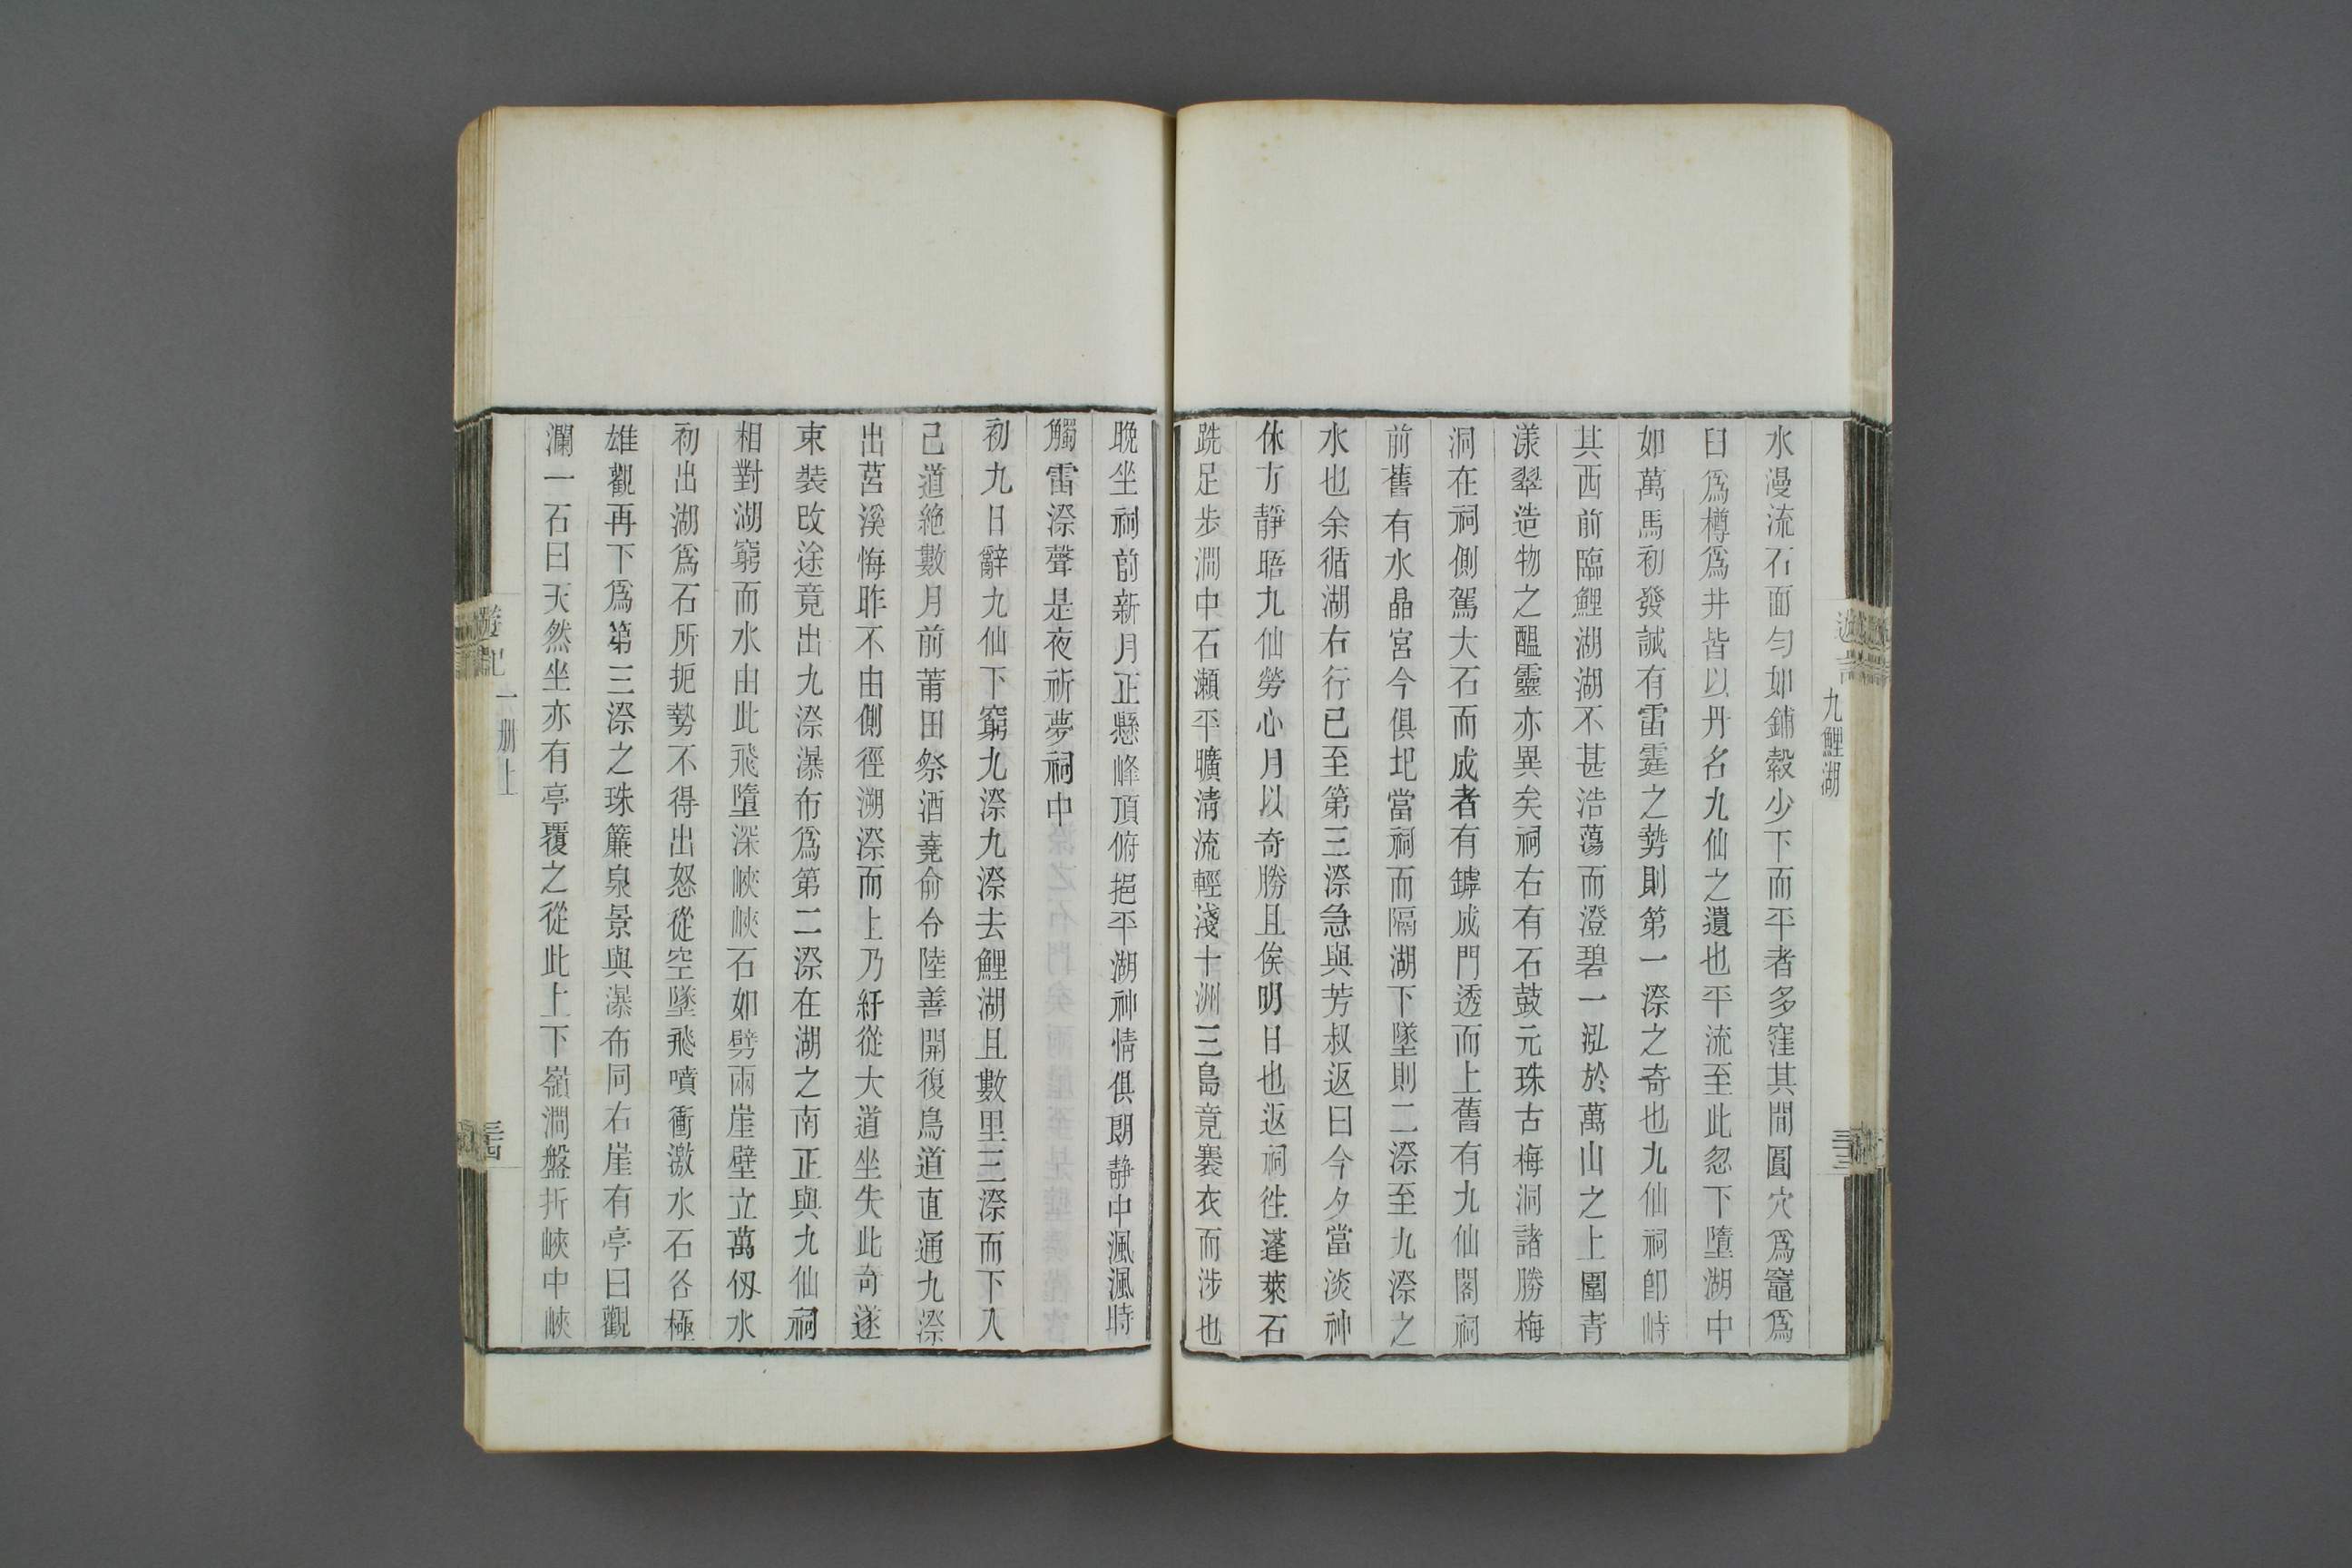 九鯉湖
水漫流石面勻如鋪縠少下而平者多窪其間圓穴爲竈爲
臼爲樽爲井皆以丹名九仙之遺也平流至此忽下墮湖中
如萬馬初發誠有雷霆之勢則第一漈之奇也九仙祠卽峙
其西前臨鯉湖湖不甚浩蕩而澄碧一泓於萬山之上圍青
漾翠造物之醖靈亦異矣祠右有石鼓元珠古梅洞諸勝梅
洞在祠側駕大石而成者有罅成門透而上舊有九仙閣祠
前舊有水晶宮今俱圯當祠而隔湖下墜則二漈至九漈之
水也余循湖右行已至第三漈急與芳叔返曰今夕當淡神
休力靜晤九仙勞心月以奇勝且俟明日也返祠徃蓬萊石
跣足步澗中石瀨平曠清流輕淺十洲三島竟褰衣而涉也
晚坐祠前新月正懸峰頂俯挹平湖神情俱朗靜中渢渢時
觸雷漈聲是夜祈夢祠中
初九日辭九仙下窮九漈九漈去鯉湖且數里三漈而下入
已道絶數月前莆田祭酒堯俞令陸善開復鳥道直通九漈
出莒溪悔昨不由側徑溯漈而上乃紆從大道坐失此奇遂
束裝改途竟出九漈瀑布爲第二漈在湖之南正與九仙祠
相對湖窮而水由此飛墮深峽峽石如劈兩崖壁立萬仭水
初出湖爲石所扼勢不得出怒從空墜飛噴衝激水石各極
雄觀再下爲第三漈之珠簾泉景與瀑布同右崖有亭曰觀
瀾一石曰天然坐亦有亭覆之從此上下嶺澗盤折峽中峽
遊記
一册上
三四